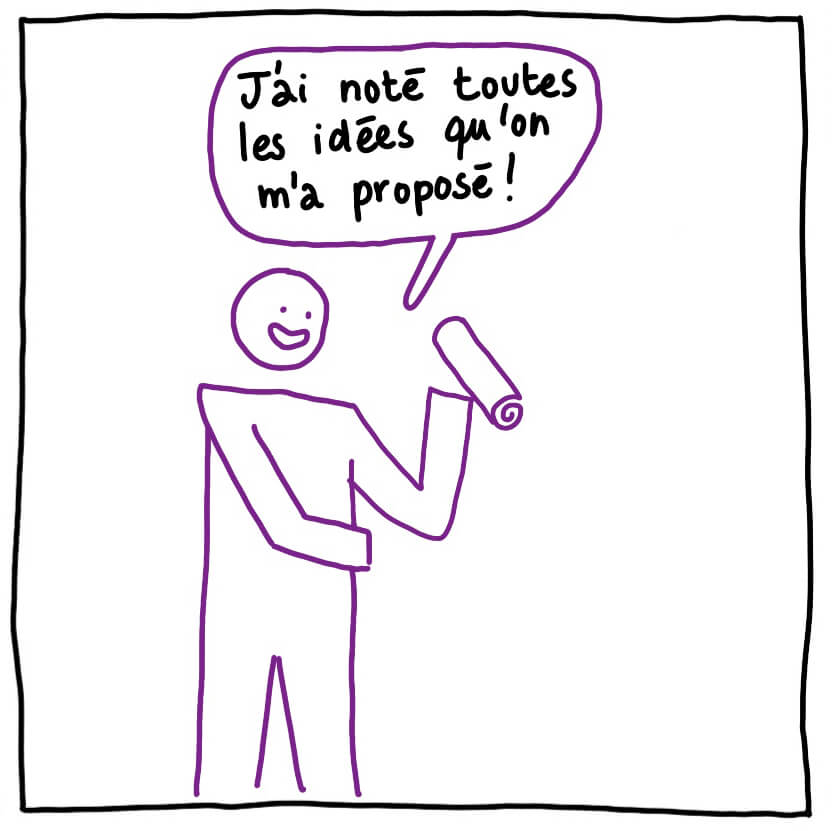 J'ai noté toutes
les idées qu'on
m'a proposé !